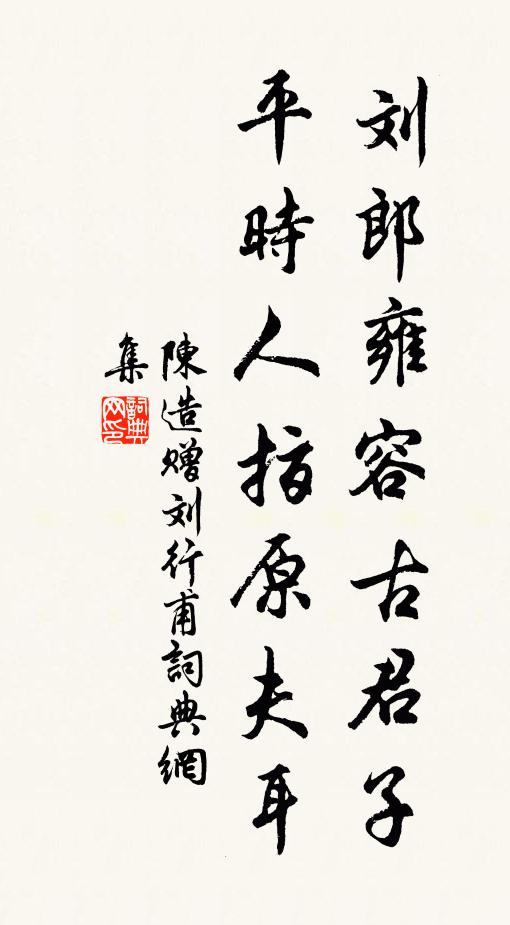 刘郎雍容古君子
平時人指原夫耳
陳造贈刘行甫詞典網
集
詞典网印